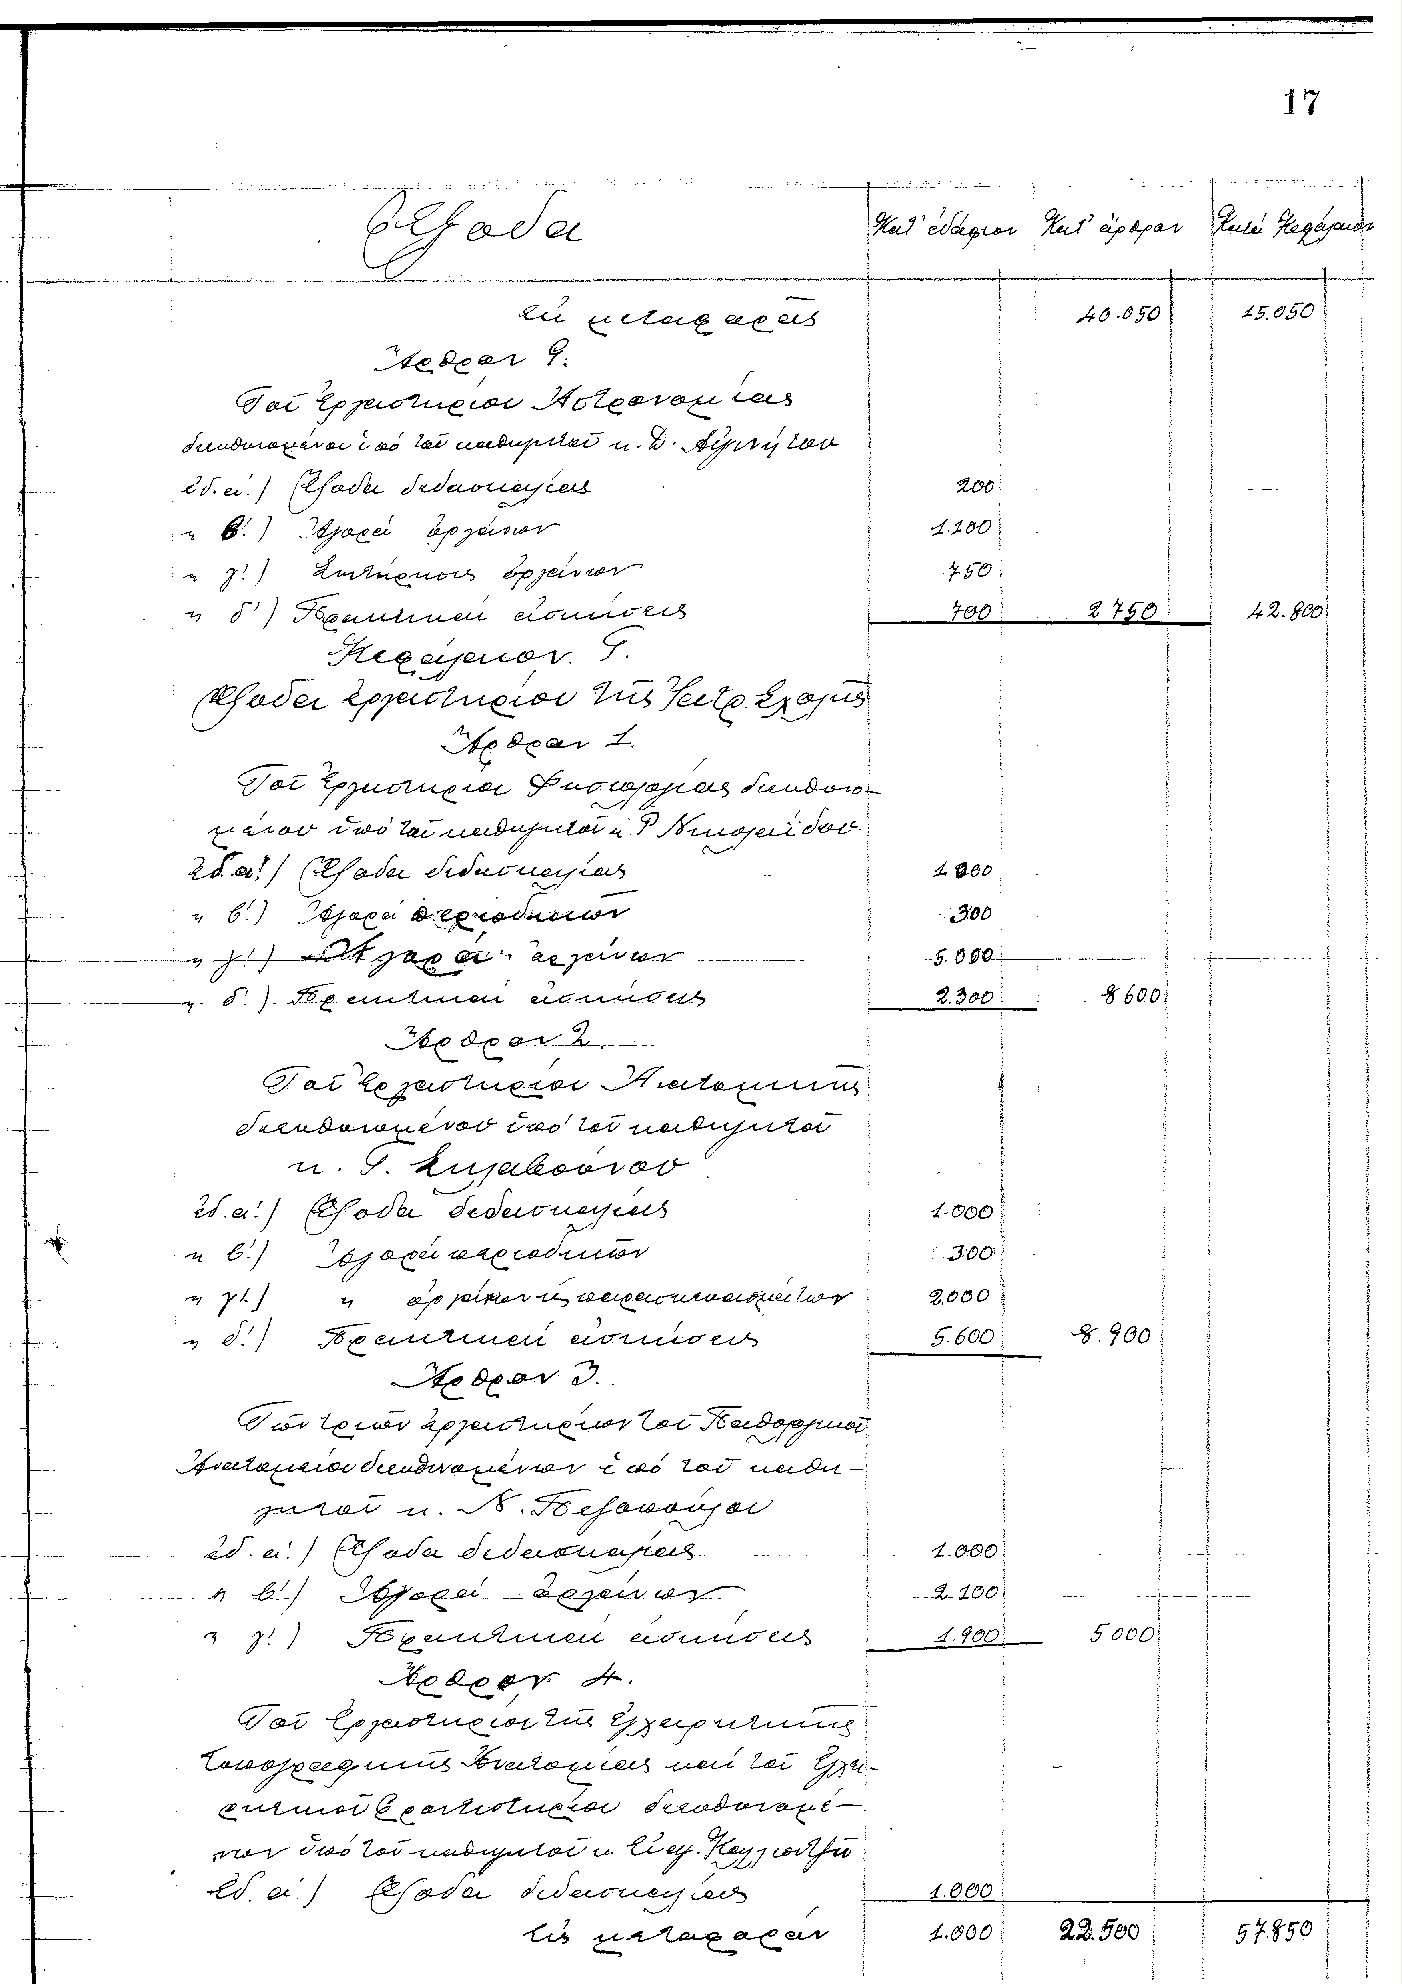 17
Ἔξοδα Κατ' ἐδάφιον Κατ' ἄρθρον Κατὰ Κεφάλαιον
ἐκ μεταφορᾶς 40.050 15.050
Ἄρθρον 9.
Τοῦ Ἐργαστηρίου Ἀστρονομίας
διευθυνομένου ὑπὸ τοῦ καθηγητοῦ κ. Δ. Αἰγινήτου
ἐδ. α'.) Ἔξοδα διδασκαλίας 200
" β'.) Ἀγορὰ ὀργάνων 1.100
" γ'.) Συντήρησις ὀργάνων 750
" δ') Πρακτικαὶ ἀσκήσεις 700 2750 42.800
Κεφάλαιον. Γ.
Ἔξοδα ἐργαστηρίου τῆς Ἰατρ. Σχολῆς
Ἄρθρον 1.
Τοῦ Ἐργαστηρίου Φυσιολογίας διευθυνο-
μένου ὑπὸ τοῦ καθηγητοῦ κ. Ρ Νικολαΐδου
ἐδ. α'.) Ἔξοδα διδασκαλίας 1000
" β'.) Ἀγορὰ περιοδικῶν 300
" γ'.) Ἀγορὰ ὀργάνων 5.000
" δ'.) Πρακτικαὶ ἀσκήσεις 2.300 8600
Ἄρθρον 2.
Τοῦ Ἐργαστηρίου Ἀνατομικῆς
διευθυνομένου ὑπὸ τοῦ καθηγητοῦ
κ. Γ. Σκλαβούνου
ἐδ. α'.) Ἔξοδα διδασκαλίας 1.000
" β'.) Ἀγορὰ περιοδικῶν 300
" γ'.) " ὀργάνων κ παρασκευασμάτων 2.000
" δ'.) Πρακτικαὶ ἀσκήσεις 5.600 8.900
Ἄρθρον 3.
Τῶν τριῶν ἐργαστηρίων τοῦ Παθολογικοῦ
Ἀνατομείου διευθυνομένων ὑπὸ τοῦ καθη-
γητοῦ κ. Ν. Πεζοπούλου
ἐδ. α'.) Ἔξοδα διδασκαλίας 1.000
" β'.) Ἀγορὰ ὀργάνων 2.100
" γ'.) Πρακτικαὶ ἀσκήσεις 1.900 5000
Ἄρθρον 4.
Τοῦ Ἐργαστηρίου τῆς Ἐγχειρητικῆς
τοπογραφικῆς Ἀνατομίας καὶ τοῦ Ἐγχει-
ρητικοῦ Φροντιστηρίου διευθυνομέ-
νων ὑπὸ τοῦ καθηγητοῦ κ. Εὐαγ. Καλλιοντζῆ
ἐδ. α'.) Ἔξοδα διδασκαλίας 1.000
εἰς μεταφορὰν 1.000 22.500 57.850